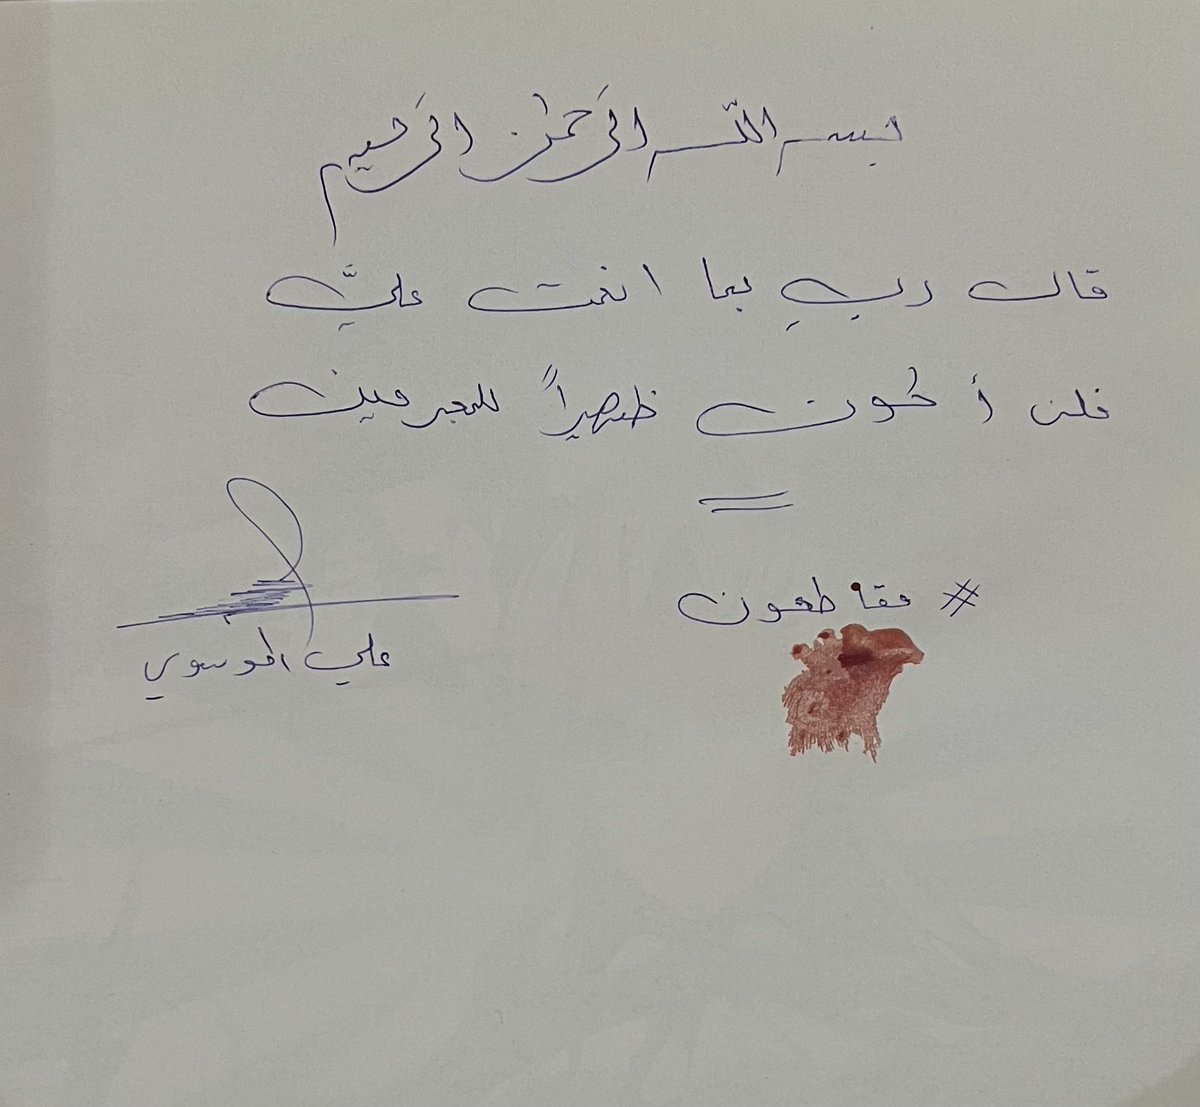 بسم الله الرَحمٰن الرَحيم
قال ربِ بما انعمت عليَّ
فلن أكون ظهيراً للمجرمين
# مقاطعون
علي الموسوي